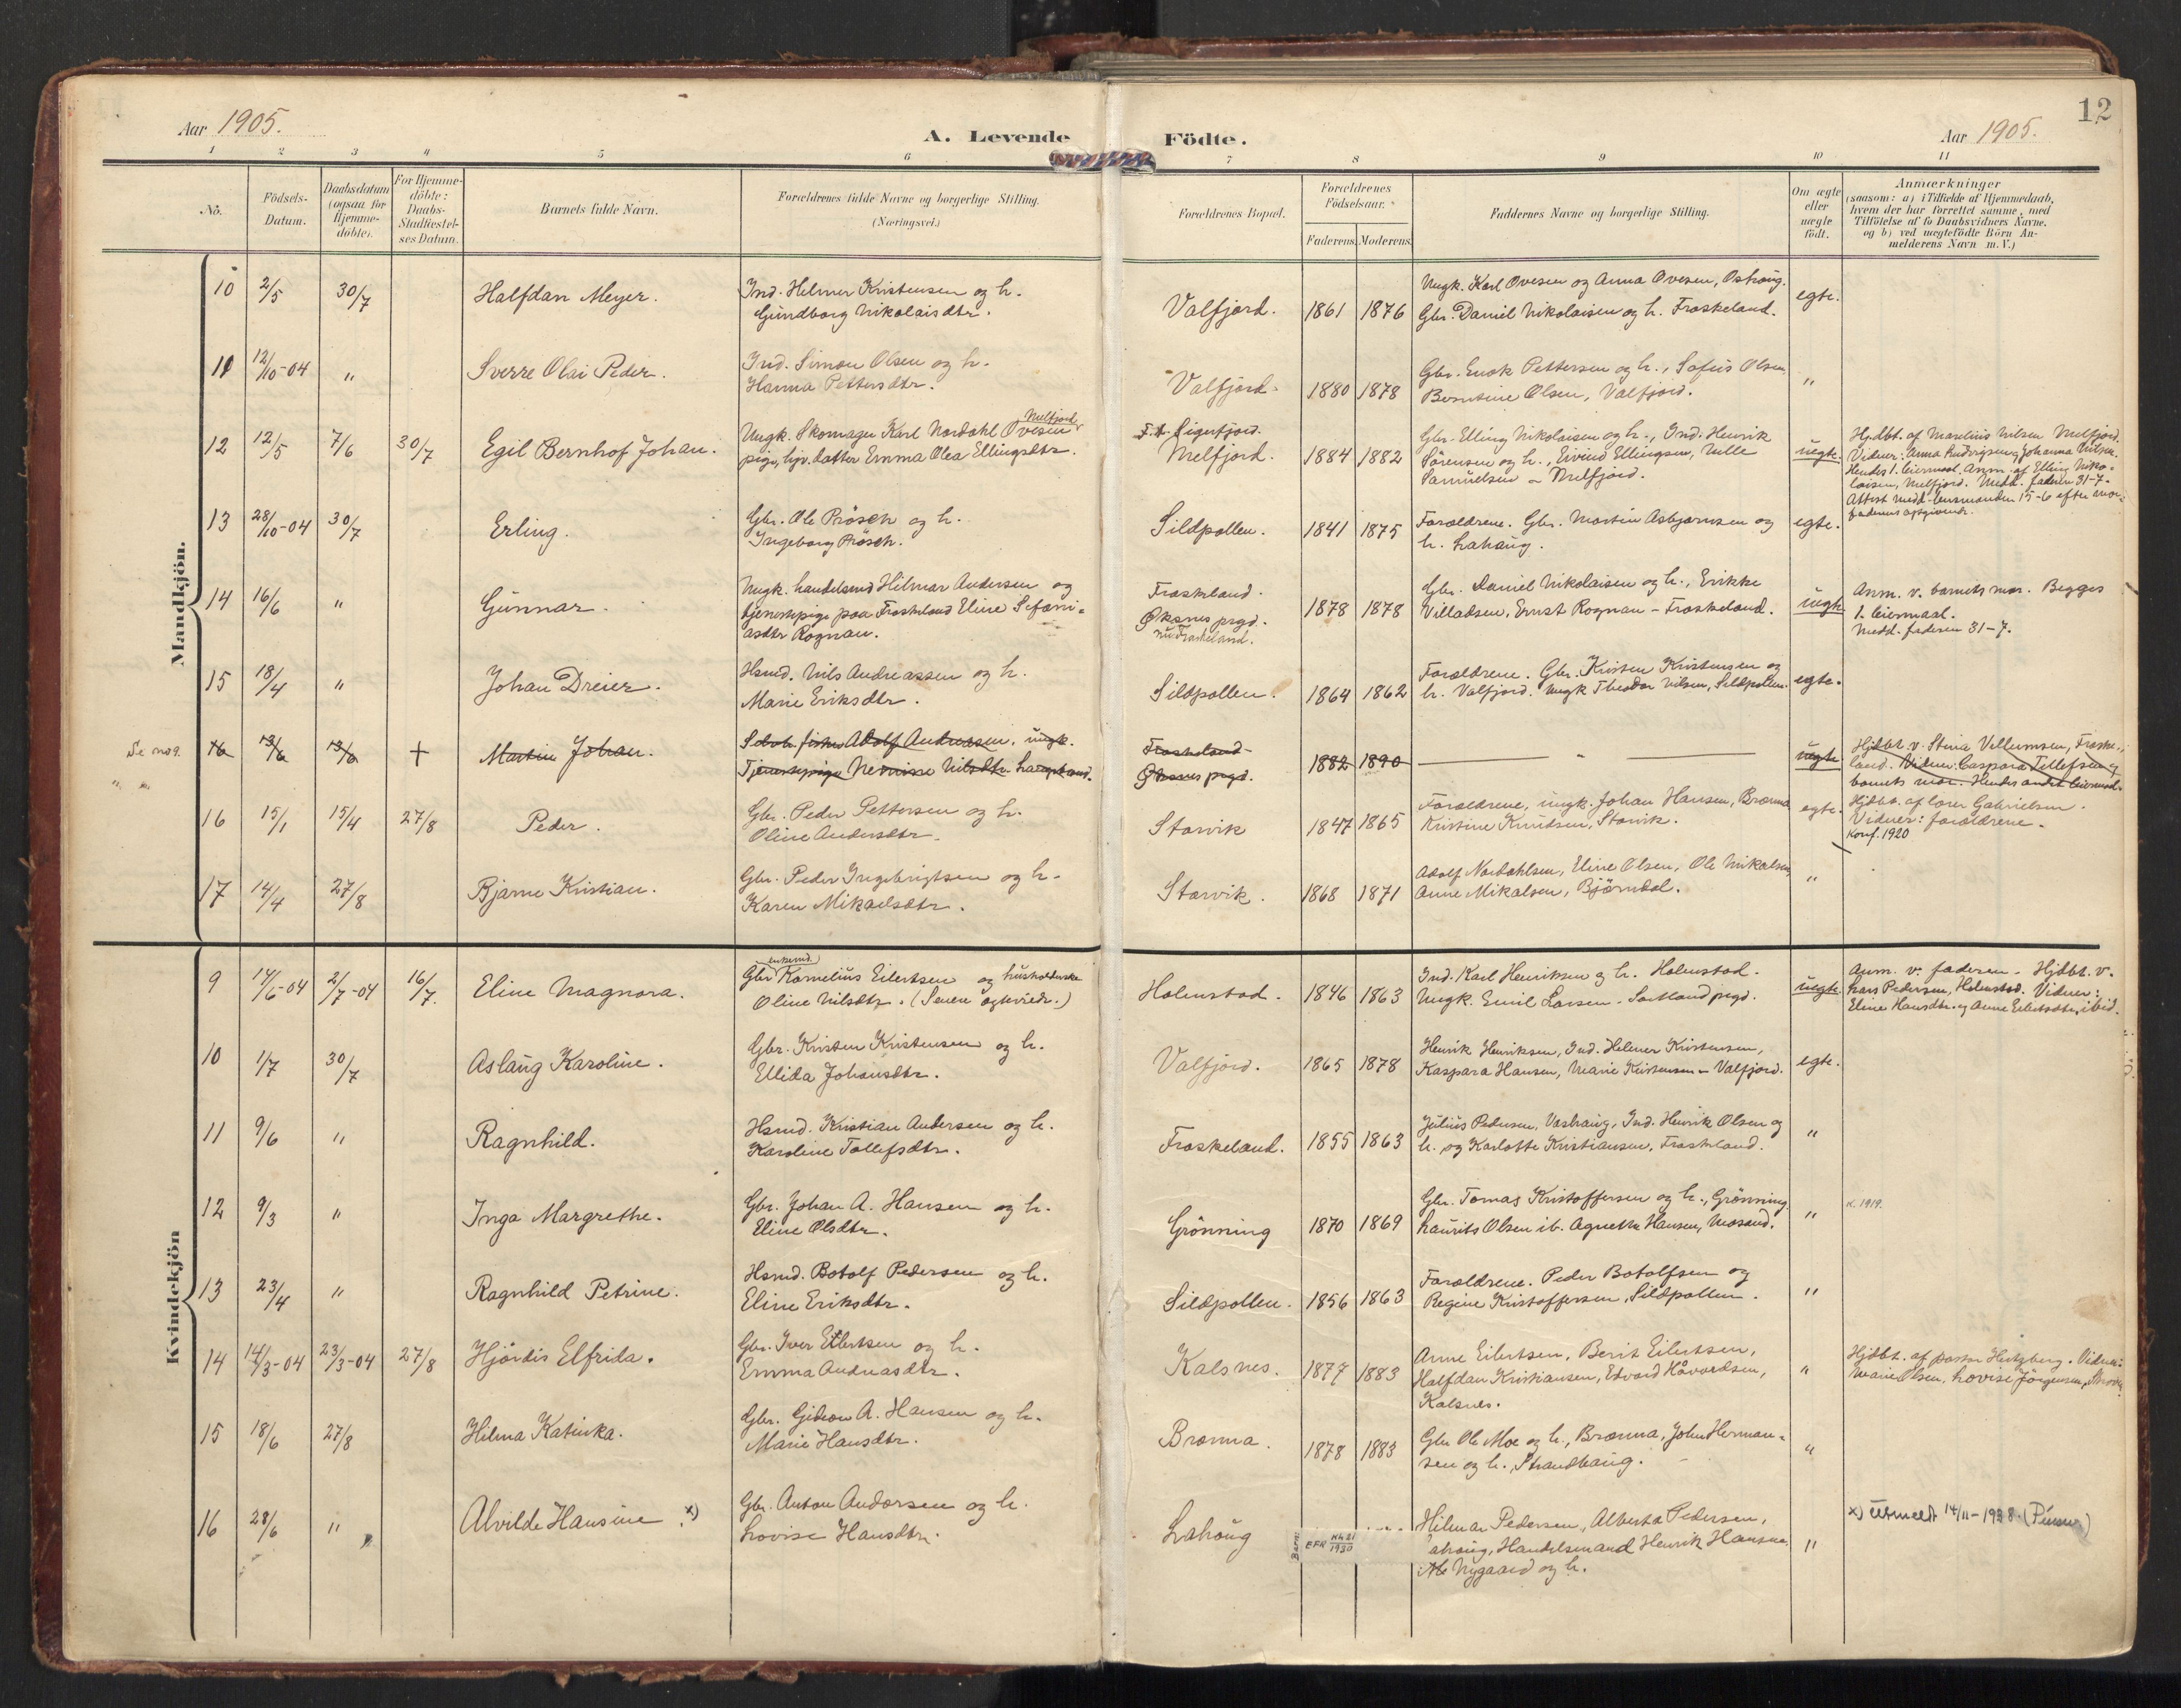 12
Aar 1905.
A. Levende Födte.
Aar 1905.
1 2 3 4 5 6 7 8 9 10 11
No.
Födsels-
Datum.
Daabsdatum
(ogsaa for
Hjemme-
döbte).
For Hjemme-
döbte:
Daabs-
Stadfæstel-
ses Datum.
Barnets fulde Navn.
Forældrenes fulde Navne og borgerlige Stilling.
(Næringsvei.)
Forældrenes Bopæl.
Forældrenes
Födselsaar.
Faderens. Moderens.
Faddernes Navne og borgerlige Stilling.
Om ægte
eller
uægte
födt.
Anmærkninger
(saasom: a) i Tilfælde af Hjemmedaab,
hvem der har forrettet samme, med
Tilföielse af to Daabsvidners Navne,
og b) ved uægtefödte Börn An-
melderens Navn m. V.)
Mandkjön.
10 2/5 30/7 Halfdan Meyer.
Ind. Helmer Kristensen og h.
Gundborg Nikolaisdtr.
Valfjord. 1861 1876
Ungk. Karl Ovesen og Anna Ovesen, Osthaug.
Gbr. Daniel Nikolaisen og h. Froskeland.
egte.
11 12/10-04 " Sverre Olai Peder.
Ind. Simon Olsen og h.
Hanna Pettersdtr.
Valfjord. 1880 1878
Gbr. Enok Pettersen og h., Sofus Olsen,
Berntine Olsen, Valfjord.
"
12 12/5 7/6 30/7 Egil Bernhof Johan.
Melfjord
Ungk. Skomager Karl Nordahl Ovesen
pige, hjv. datter Emma Olea Ellingsdtr.
F. t. Sigerfjord.
Melfjord. 1884 1882
Gbr. Elling Nikolaisen og h., Ind. Henrik
Sørensen og h., Eivind Ellingsen, Nille
Samuelsen - Melfjord.
uegte.
Hjdbt. af Marelius Nilsen Melfjord.
Vidner: Anna Ludvigsen og Johanna Nilsen.
Hendes 1. leiermaal. Anm. af Elling Niko-
laisen, Melfjord. Medd. faderen 31-7.
Attest medd. lensmanden 15-6 efter mor-
faderens opgivende.
13 28/10-04 30/7 Erling.
Gbr. Ole Prösch og h.
Ingeborg Prösch.
Sildpollen. 1841 1875
Forældrene. Gbr. Martin Asbjørnsen og
h. Lahaug.
egte.
14 16/6 " Gunnar.
Ungk. handelsmd Hilmar Andersen og
tjenestepige paa Froskeland Eline Sefani-
asdtr Rognan.
Froskeland.
Øksnes prgd.
nu Froskeland.
1878 1878
Gbr. Daniel Nikolaisen og h., Erikke
Villadsen, Ernst Rognan - Froskeland.
uegte
Anm. v. barnets mor. Begges
1. leiermaal.
Medd. faderen 31-7.
15 18/4 " Johan Dreier.
Hsmd. Nils Andreassen og h.
Marie Eriksdtr.
Sildpollen. 1864 1862
Forældrene. Gbr. Kristen Kristensen og
h. Valfjord. Ungk Theodor Nilsen, Sildpollen.
egte.
Se no 9.
16 13/6 13/6 + Martin Johan.
Selvst. fisker Adolf Andreasen, ungk.
Tjenestepige Hernine Nilsdtr.
Froskeland
Øksnes prgd.
1882 1890
uegte
Hjdbt. v. Stina Vellumsen, Froske-
land. Vidner: Caspara Tellefsen og
barnets mor. Hendes andet leiermaal.
16 15/1 15/4 27/8 Peder.
Gbr. Peder Pettersen og h.
Oline Andersdtr.
Storvik 1847 1865
Forældrene, ungk. Johan Hansen, Brænna
Kristine Knudsen, Storvik.
egte.
Hjdbt. af lærer Gabrielsen.
Vidner: forældrene.
Konf. 1920
17 14/4 27/8 Bjarne Kristian.
Gbr. Peder Ingebrigtsen og h.
Karen Mikaelsdtr.
Storvik. 1868 1871
Adolf Nordahlsen, Eline Olsen, Ole Mikalsen,
Anne Mikalsen, Björndal.
"
Kvindekjön
9 14/6-04 2/7-04 16/7. Eline Magnora.
enkemd.
Gbr Kornelius Eilertsen og husholderske
Oline Nilsdtr. (Senere ægteviedr.)
Holmstad. 1846 1863
Ind. Karl Henriksen og h. Holmstad.
Ungk. Emil Larsen. Sortland prgd.
uegte
Anm. v. faderen. Hjdbt. v.
Lars Pedersen, Holmstad. Vidner:
Eline Hansdtr. og Anne Eilertsdtr., ibid.
10 1/7 30/7 Aslaug Karoline.
Gbr. Kristen Kristensen og h.
Ellida Johansdtr.
Valfjord. 1865 1878
Henrik Henriksen, Ind. Helmer Kristensen,
Kaspara Hansen, Marie Kristensen - Valfjord.
egte.
11 9/6 " Ragnhild.
Hsmd. Kristian Andersen og h.
Karoline Tollefsdtr.
Froskeland. 1855 1863
Julius Pedersen, Vashaug, Ind. Henrik Olsen og
h. og Karlotte Kristiansen, Froskeland.
"
12 9/3 " Inga Margrethe.
Gbr. Johan A. Hansen og h.
Eline Olsdtr.
Grönning 1870 1869
Gbr. Tomas Kristoffersen og h., Grönning
Laurits Olsen ib. Agnethe Hansen, Mosand.
"
K. 1919.
13 23/4 " Ragnhild Petrine.
Hsmd. Botolf Pedersen og h.
Eline Eriksdtr.
Sildpollen. 1856 1863
Forældrene. Peder Botolfsen og
Regine Kristoffersen, Sildpollen.
"
14 14/3-04 23/3-04 27/8 Hjördis Elfrida.
Gbr. Iver Eilertsen og h.
Emma Andreasdtr.
Kalsnes. 1877 1883
Anne Eilertsen, Berit Eilertsen,
Halfdan Kristiansen, Edvard Håvardsen,
Kalsnes.
"
Hjdbt. af pastor Hertzberg. Vidner:
Marie Olsen, Lovise Jörgensen,
15 18/6 27/8 Helma Katinka.
Gbr. Gideon A. Hansen og h.
Marie Hansdtr.
Brænna. 1878 1883
Gbr Ole Moe og h., Brænna, John Herman-
sen og h., Strandhaug.
"
16 28/6 " Alvilde Hansine x)
Gbr. Anton Andersen og h.
Lovise Hansdtr.
Lahaug
Barn: EFR 1930
Hilmar Pedersen, Alberta Pedersen,
ahaug, Handelsmand Henrik Hansen
Nygaard og h.
"
x) utmeldt 14/11-1938. (Pinse)